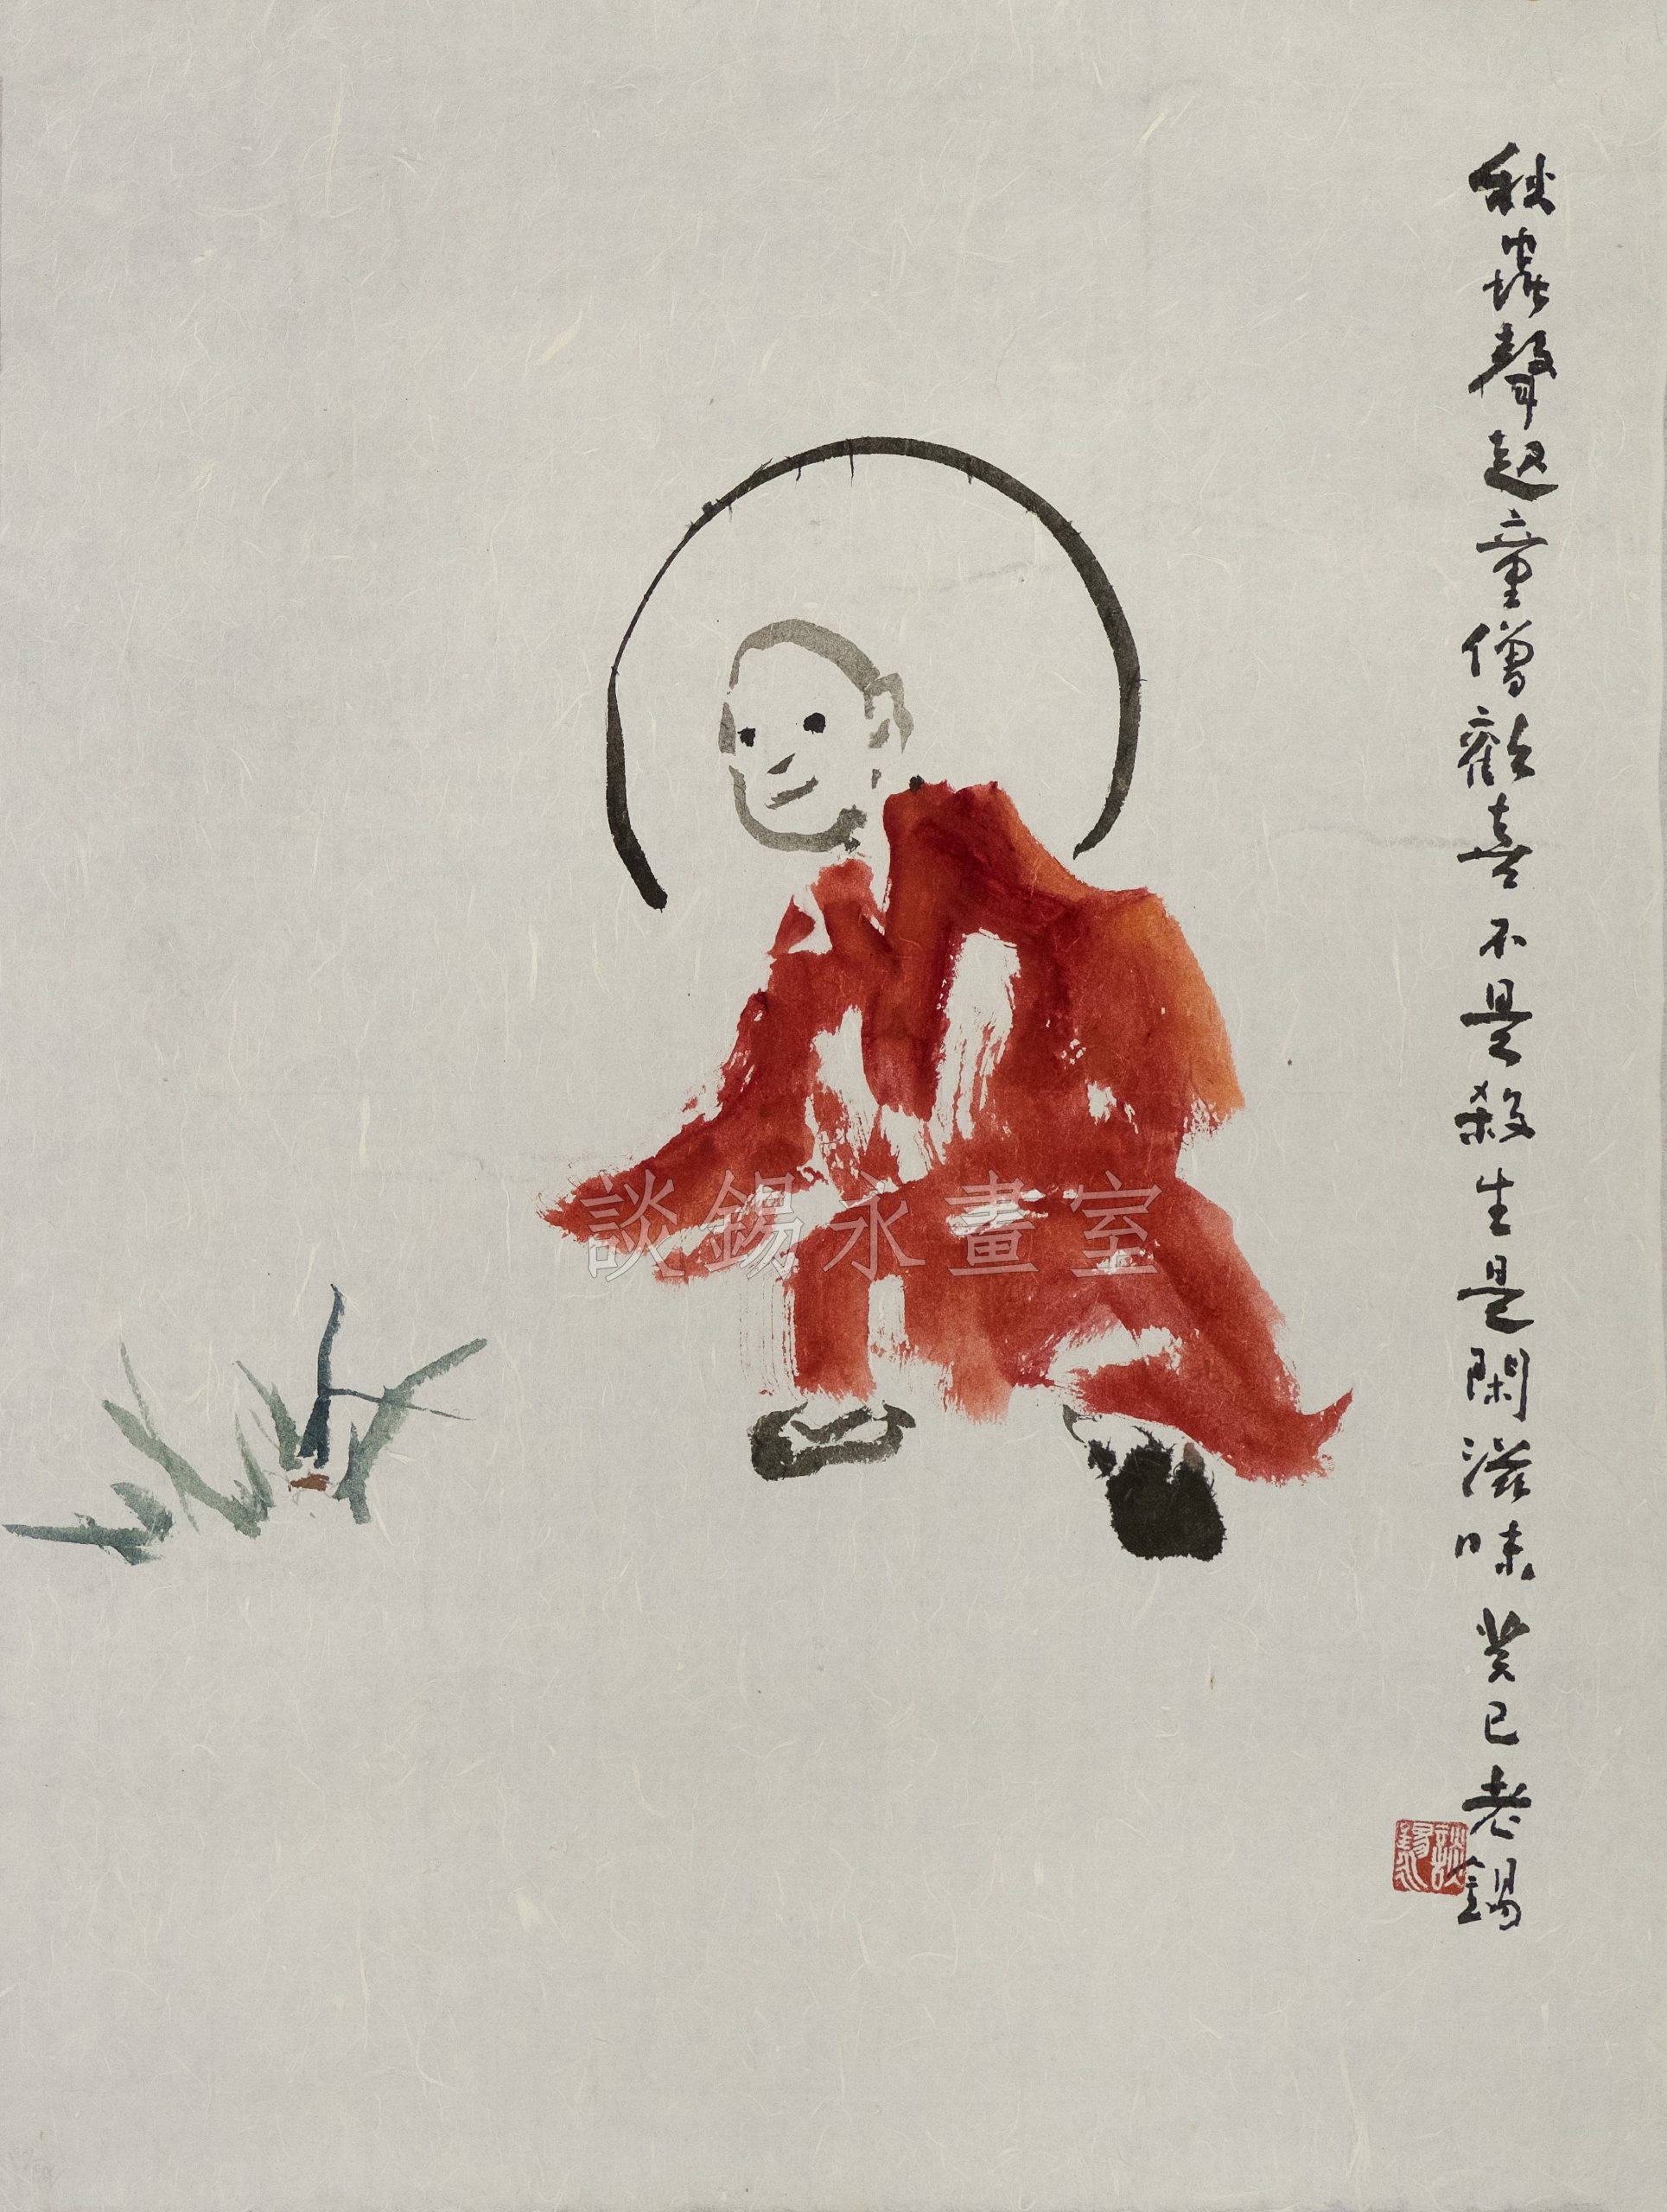 秋蟲聲起童僧歡喜不是殺生是閑滋味癸巳老錫
談錫永
談錫永畫室